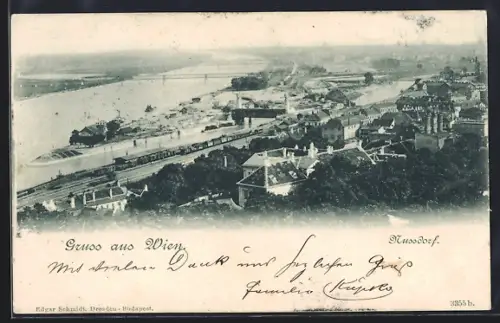 Gruss aus Wien.
Nussdorf.
Mit Dank und herzlichen Gruß
Familie
Edgar Schmidt, Dresden - Budapest.
3255 b.